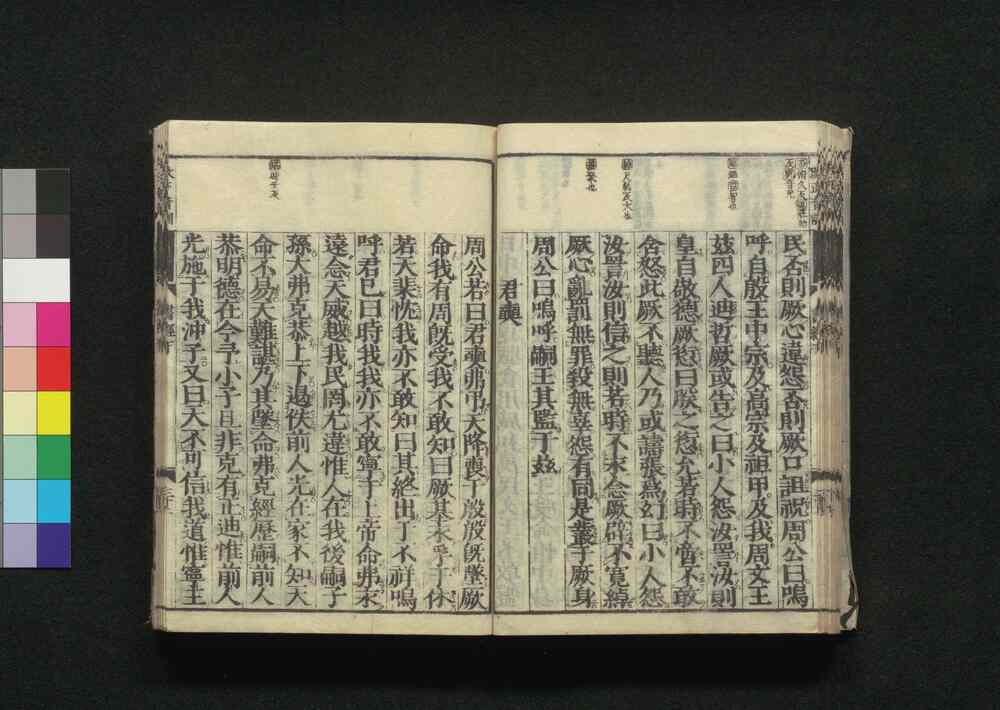 民否則厥心違怨否則厥口詛祝周公曰嗚
呼自殷王中宗及高宗及祖甲及我周文王
茲四人迪哲厥或告之曰小人怨汝詈汝則
皇自敬德厥愆曰朕之愆允若時不啻不敢
含怒此厥不聽人乃或譸張爲幻曰小人怨
汝詈汝則信之則若時不永念厥辟不寬綽
厥心亂罰無罪殺無辜怨有同是叢于厥身
周公曰嗚呼嗣王其監于玆
君奭
周公若曰君奭弗弔天降喪于殷殷旣墜厥
命我有周旣受我不敢知曰厥基永孚于休
若天棐忱我亦不敢知曰其終出于不祥嗚
呼君已曰時我我亦不敢寧于上帝命弗永
遠念天威越我民罔尤違惟人在我後嗣子
孫大弗克恭上下遏佚前人光在家不知天
命不易天難諶乃其墜命弗克經歷嗣前人
恭明德在今予小子旦非克有正迪惟前人
光施于我沖子又曰天不可信我道惟寧王